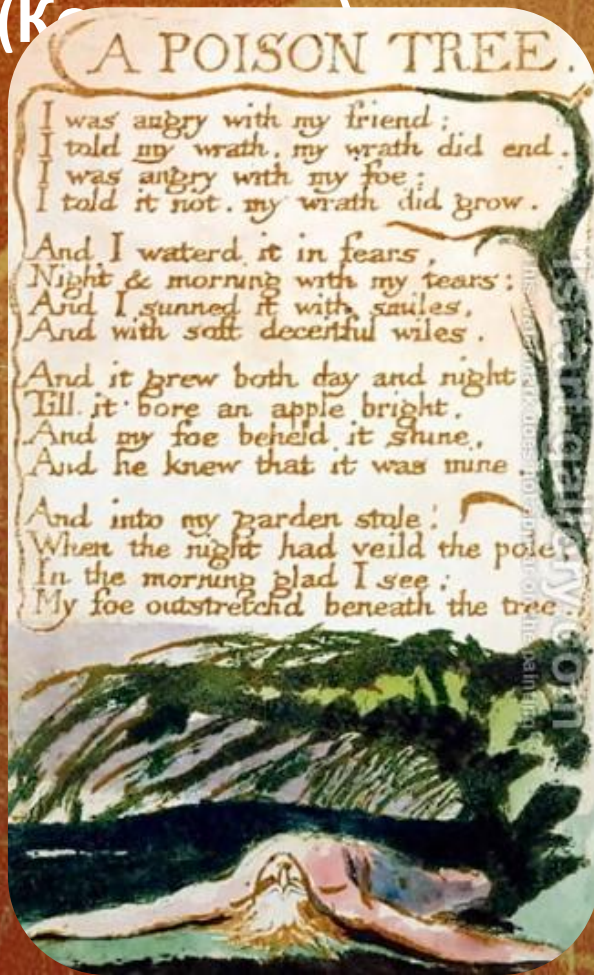 A POISON TREE.
I was angry with my friend;
I told my wrath, my wrath did end.
I was angry with my foe:
I told it not, my wrath did grow.
And I waterd it in fears,
Night & morning with my tears:
And I sunned it with smiles,
And with soft deceitful wiles.
And it grew both day and night,
Till it bore an apple bright.
And my foe beheld it shine,
And he knew that it was mine
And into my garden stole!
When the night had veild the pole;
In the morning glad I see;
My foe outstretchd beneath the tree
1st-art-gallery.com
This watermark does not appear on the painting